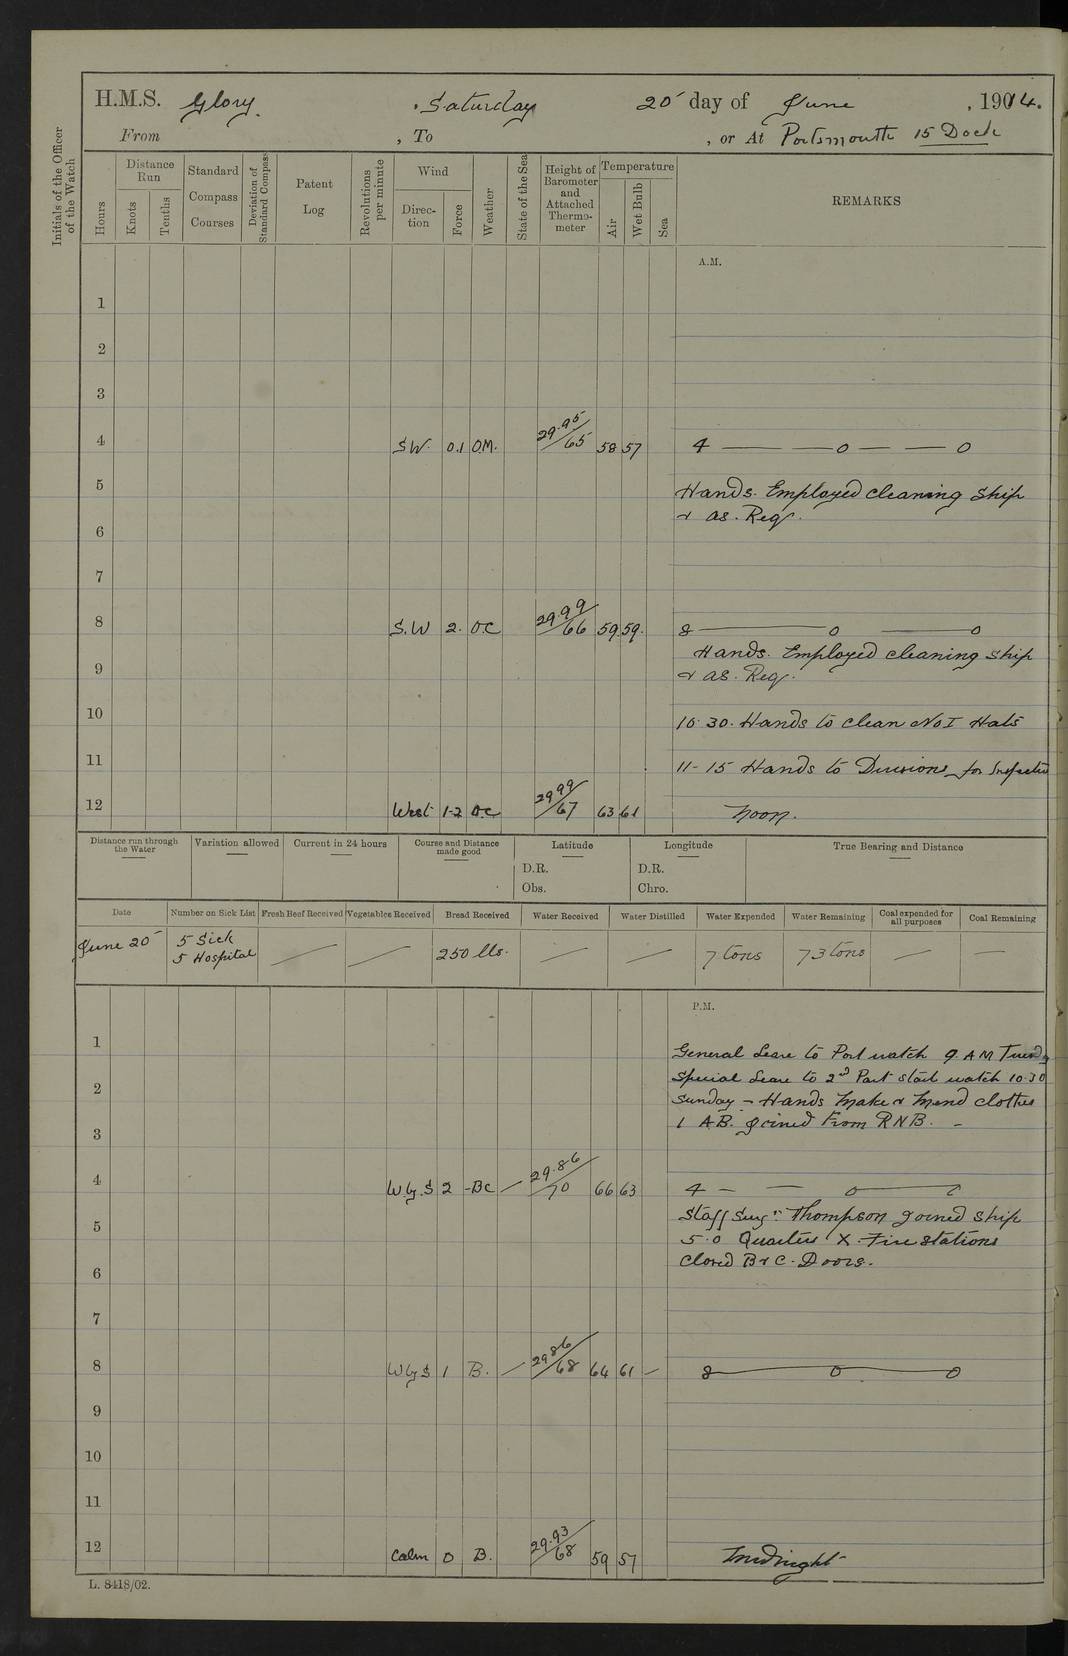 H.M.S. Glory. Saturday 20 day of June, 1914.
From , To , or At Portsmouth 15 Dock
Initials of the Officer of the Watch
Hours
Distance Run
Knots
Tenths
Standard Compass Courses
Deviation of Standard Compass
Patent Log
Revolutions per minute
Wind
Direction
Force
Weather
State of the Sea
Height of Barometer and Attached Thermometer
Temperature
Air
Wet Bulb
Sea
REMARKS
A.M.
1
2
3
4 S.W. 0.1 O.M. 29.95/65 58 57 4 — — o — — o
5 Hands. Employed cleaning Ship
& as. Req.
6
7
8 S.W 2. O.C 29.99/66 59 59. 8 — o — o
Hands. Employed cleaning Ship
9 & as. Req.
10 10.30. Hands to clean No I Hats
11 11-15 Hands to Divisions for Inspection
12 West 1-2 O.C 29 99/67 63 61 Noon.
Distance run through the Water
Variation allowed
Current in 24 hours
Course and Distance made good
Latitude
D.R.
Obs.
Longitude
D.R.
Chro.
True Bearing and Distance
Date Number on Sick List Fresh Beef Received Vegetables Received Bread Received Water Received Water Distilled Water Expended Water Remaining Coal expended for all purposes Coal Remaining
June 20 5 Sick — — 250 lbs. — — 7 tons 73 tons — —
5 Hospital
P.M.
1 General Leave to Port watch 9. AM
Special Leave to 2nd Part starb watch 10.30
2 Sunday – Hands Make & Mend clothes
1 A.B. joined From R N B. –
3
4 W by S 2 -BC — 29.86/70 66 63 4 – — o — o
Staff Surgn. Thompson joined ship
5 5.0 Quarters X. Fire Stations
closed B & C. Doors.
6
7
8 W by S 1 B. — 29 86/68 64 61 — 8 — o — o
9
10
11
12 Calm 0 B. 29.93/68 59 57 Midnight
L. 8418/02.